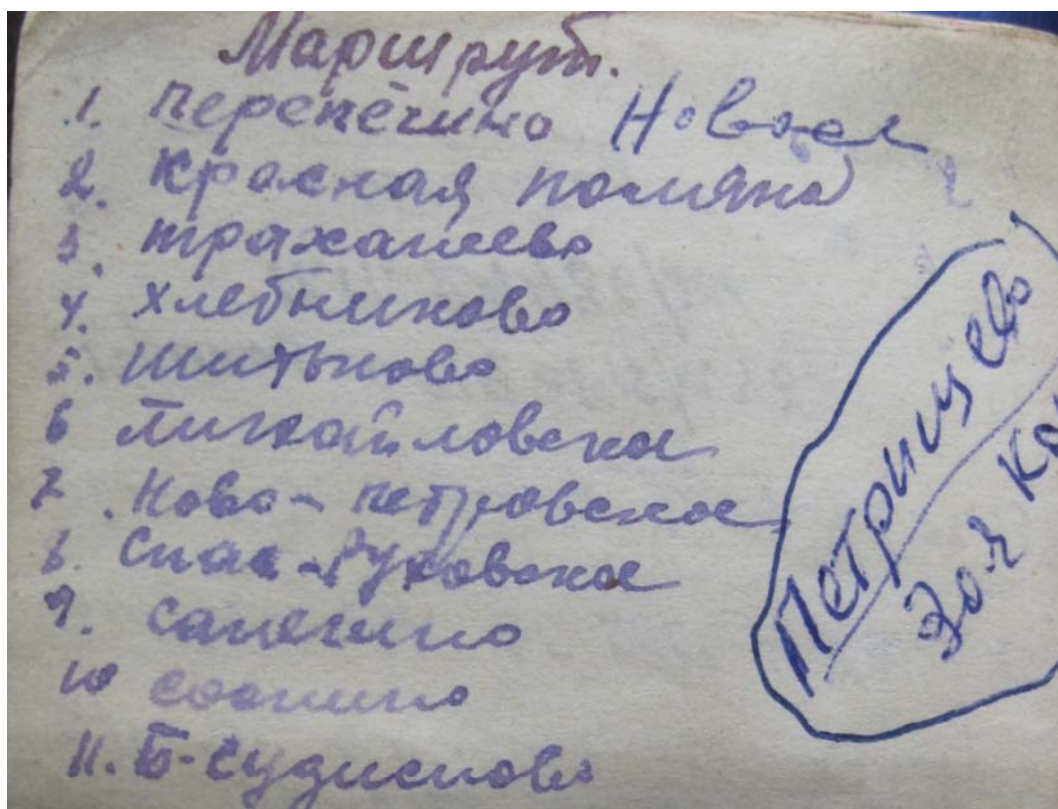 Маршрут.
1. перепечино Новое
2. красная поляна
3. трахонеево
4. хлебниково
5. шитьково
6 михайловское
7. Ново-петровское
8. Спас-Руховское
9. санечино
10 соснино
11. Б-судислово
Петрищево
Зоя